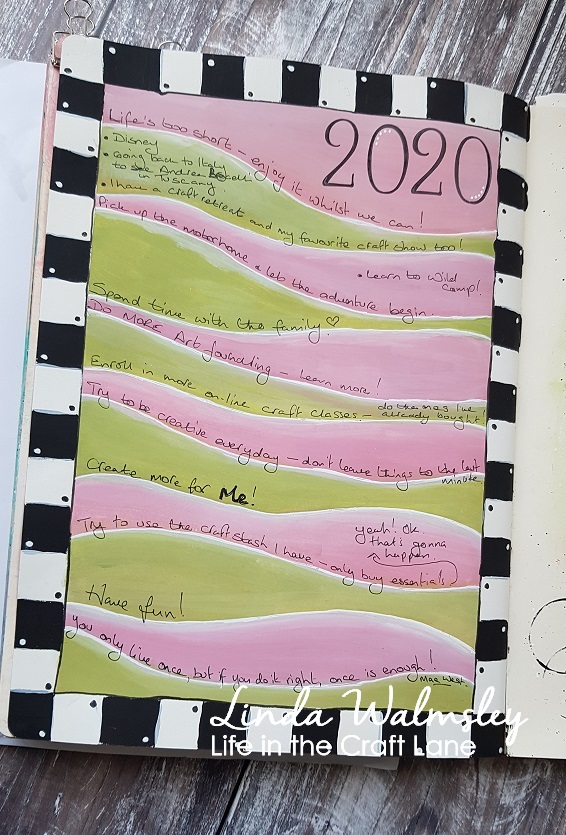 2020
Life's too short – enjoy it whilst we can!
• Disney
• Going back to Italy
to see Andrea Bocelli
in Tuscany.
• I have a craft retreat and my favourite craft show too!
Pick up the motorhome & let the adventure begin.
• Learn to Wild
Camp!
Spend time with the family! ♡
Do MORE Art Journaling – learn more!
Enroll in more on-line craft classes – do the ones I've
already bought!
Try to be creative everyday – don't leave things to the last
minute
Create more for Me!
Try to use the craft stash I have – only buy essentials
yeah! Ok
that's gonna
happen
Have fun!
you only live once, but if you do it right, once is enough!
Mae West
Linda Walmsley
Life in the Craft Lane